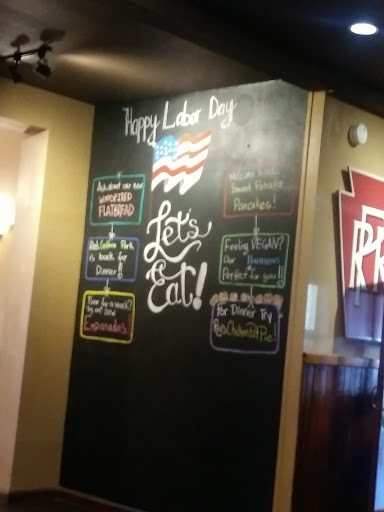 Happy Labor Day
Ask about our new
WOODFIRED
FLATBREAD
Pork
is back for
Dinner!
Time for a snack?
try our new
Empanadas
Let's
Eat!
Sweet Potato
Pancakes!
Feeling VEGAN?
Our Hummus is
Perfect for you!
For Dinner Try
Chicken Pot Pie
PR